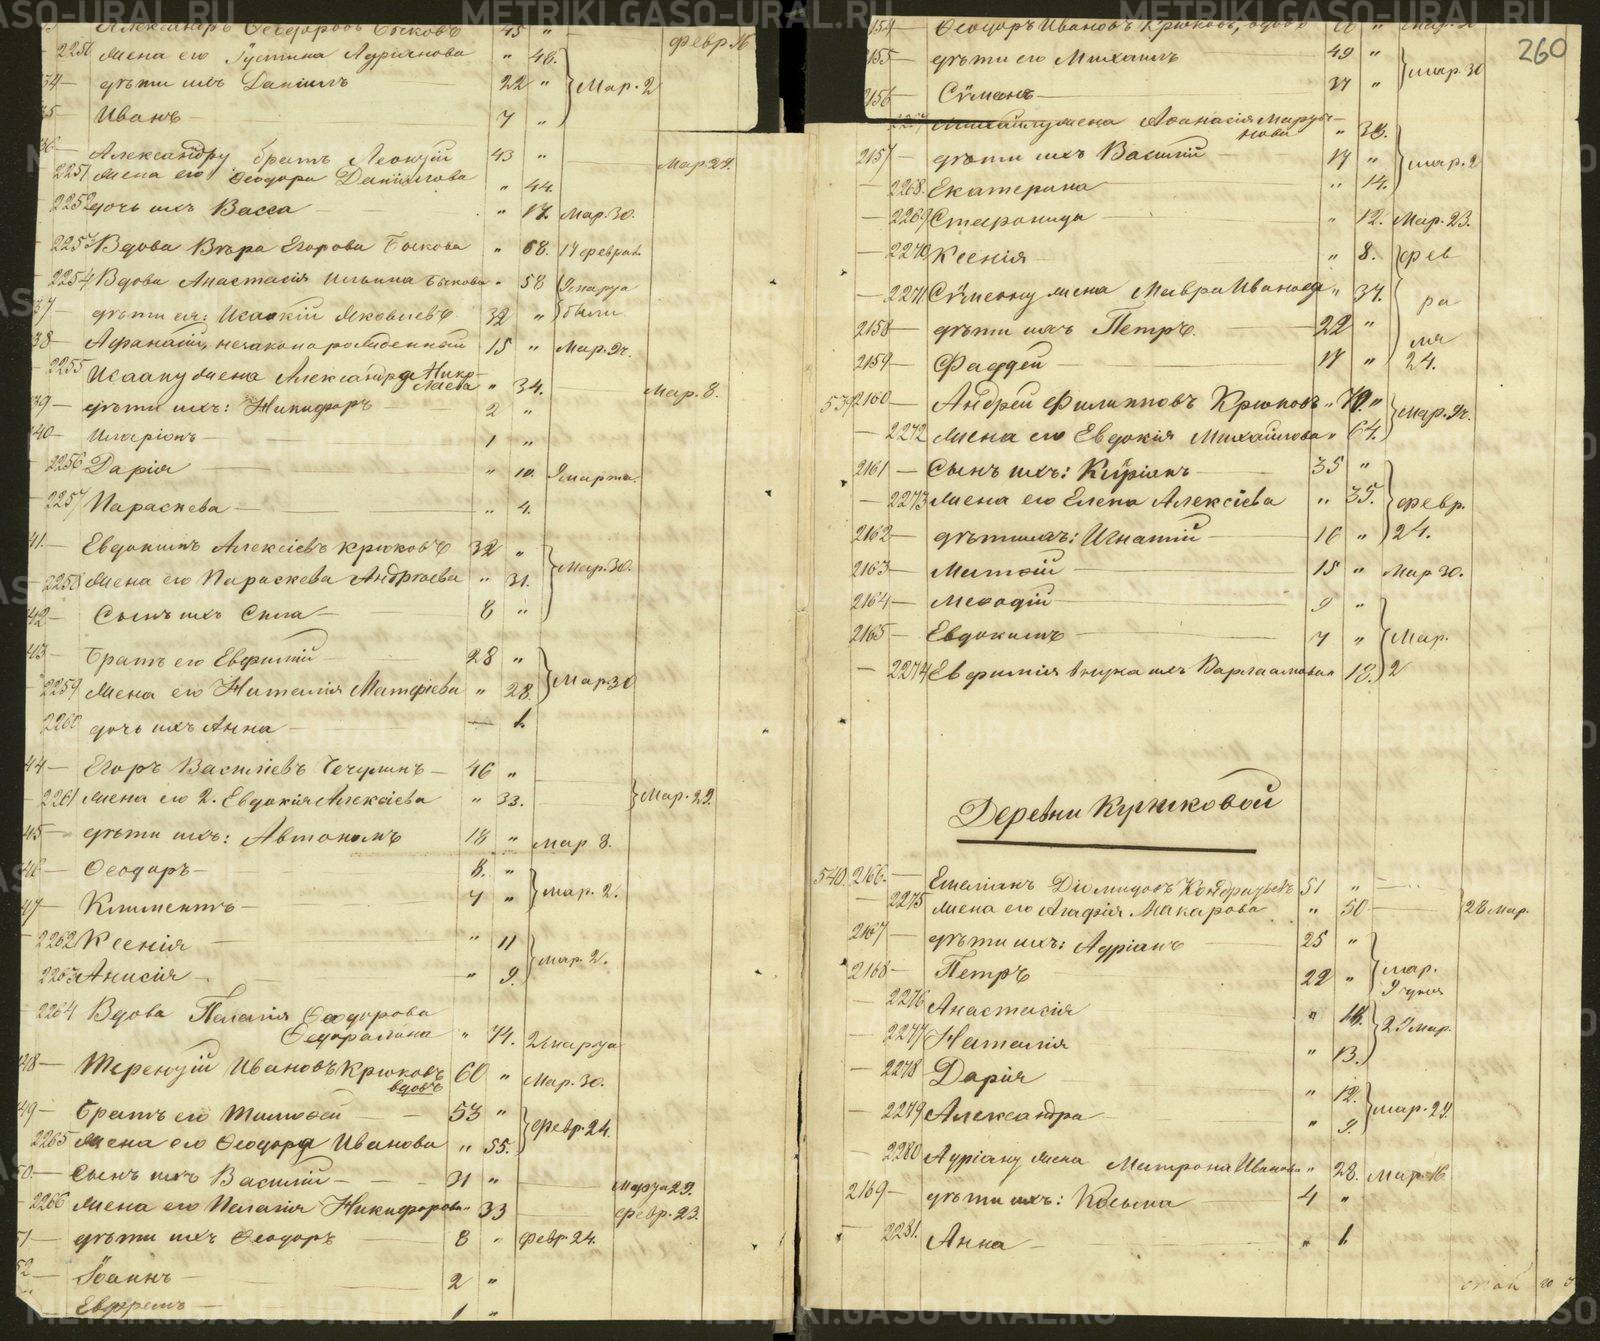 Александръ Ѳеодоровъ Быковъ 45 "
февр. 16
жена его Густина Адріанова " 48.
34 — дѣти ихъ Даніилъ 22 " Мар. 2
35 — Иванъ 7 "
36 — Александру братъ Леонтій 43 "
Мар. 22.
2251 жена его Ѳеодора Даниилова " 44.
2252 дочь ихъ Васса " 17. Мар. 30.
2253 Вдова Вѣра Егорова Быкова " 68. 14 феврал.
2254 Вдова Анастасія Ильина Быкова " 58 9 марта
37 — дѣти ея: Исаакій Яковлевъ 32 " были
38 — Афанасій, незаконорожденный 15 " Мар. 24.
2255 Исааку жена Александра Нико-
лаева " 34. Мар. 8.
39 — дѣти ихъ: Никифоръ 2 "
40 — Иларіонъ 1 "
2256 Дарія " 10. 9 марта.
2257 Параскева " 4.
41. — Евдокимъ Алексіевъ Крюковъ 32 "
Мар. 30.
2258 жена его Параскева Андреева " 31.
42 — Сынъ ихъ Сила 8 "
43 — Братъ его Евфимій 28 "
Мар. 30
2259 жена его Наталія Матфіева " 28.
2260 дочь ихъ Анна — 1.
44 — Егоръ Васильевъ Чечулинъ 46 "
2261 жена его 2. Евдокія Алексіева " 33. Мар. 22.
45 — дѣти ихъ: Автономъ 18 " мар. 8.
46 — Ѳеодоръ 8. "
мар. 2.
47 — Климентъ 4 "
2262 Ксенія " 11
мар. 2.
2263 Анисія " 9.
2264 Вдова Пелагія Ѳеодорова
" 74. 2 марта
48 — Терентій Ивановъ Крюковъ 60 " Мар. 30.
вдовъ
49 — Братъ его Тимоѳей 53 "
февр. 24.
2265 жена его Ѳеодора Иванова " 55.
50. — Сынъ ихъ Василій 31 " марта 22.
2266 жена его Пелагія Никифорова " 33 февр. 23.
51 — дѣти ихъ Ѳеодоръ 8 " февр. 24.
52 — Іоаннъ 2 "
Евфремъ 1 "
260
2154 — Ѳеодоръ Ивановъ Крюковъ, вдовъ
2155 — дѣти его Михаилъ 49 "
мар. 30
2156 — Сѵмеонъ 37 "
2267 Михаилу жена Афанасія Марты-
нова " 38.
2157 — дѣти ихъ Василій 17 " мар. 2
2268. Екатерина " 14.
2269 Степанида " 12. Мар. 23.
2270 Ксенія " 8. фев
2271 Сѵмеону жена Мавра Иванова " 37.
ра
2158 — дѣти ихъ Петръ 22 "
ля
2159 — Фаддей 17 " 24.
539 2160 — Андрей Филипповъ Крюковъ " 70. "
Мар. 24.
2272 жена его Евдокія Михайлова " 64.
2161 — Сынъ ихъ: Кипріанъ 35 "
2273 жена его Елена Алексіева " 35. февр.
2162 — дѣти ихъ: Игнатій 16 " 24.
2163 — Матѳій 15 " Мар. 30.
2164 — Меѳодій 9 "
2165 — Евдокимъ 7 " Мар.
2274 Евфимія внука ихъ Варлаамова " 18. 2
Деревни Крюковой
540. 2166 — Емеліанъ Діомидовъ Кондратьевъ 51 "
2275 жена его Агафія Макарова " 50 28 мар.
2167 — дѣти ихъ: Адріанъ 25 "
мар.
2168 — Петръ 22 "
2276 Анастасія " 18.
22 мар.
2277 Наталія " 13.
2278 Дарія " 12.
мар. 22.
2279 Александра " 9.
2280 Адріану жена Матрона Иванова " 28. Мар. 16
2169 — дѣти ихъ: Косьма 4 "
2281. Анна " 1.
METRIKI.GASO-URAL.RU